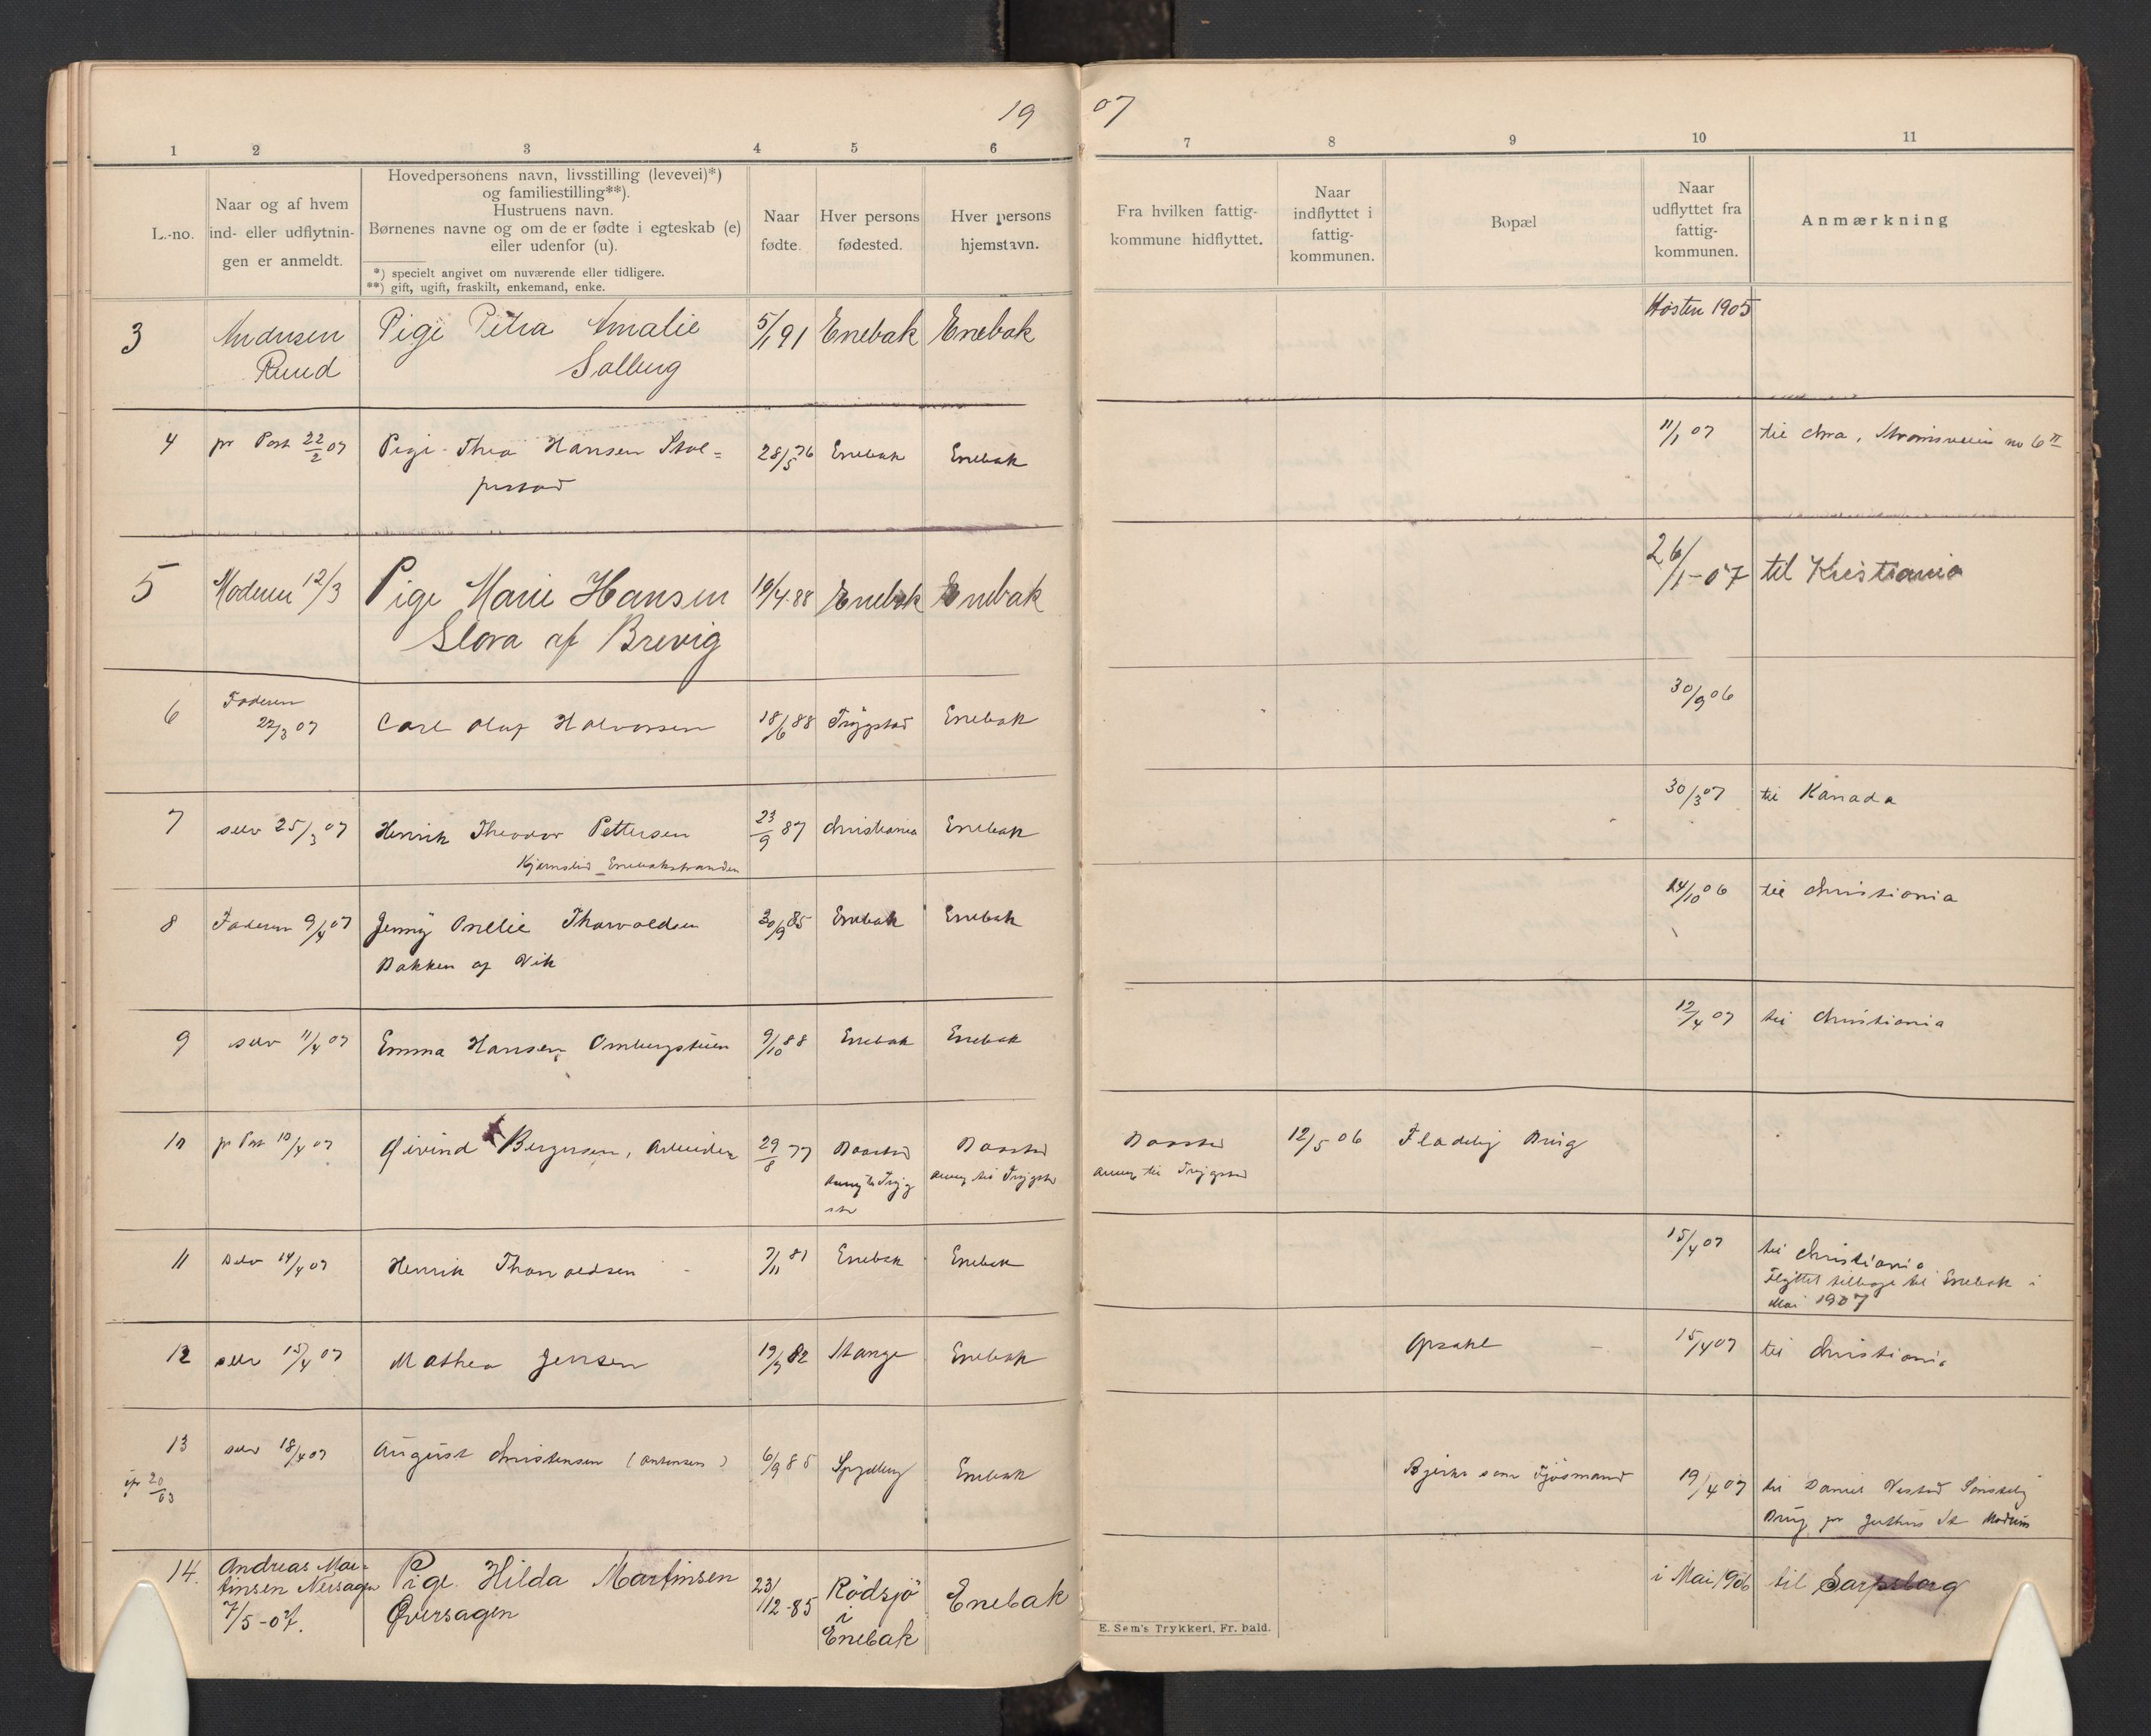 19 07
1 2 3 4 5 6 7 8 9 10 11
L.-no.
Naar og af hvem
ind- eller udflytnin-
gen er anmeldt.
Hovedpersonens navn, livsstilling (levevei)*)
og familiestilling**).
Hustruens navn.
Børnenes navne og om de er fødte i egteskab (e)
eller udenfor (u).
*) specielt angivet om nuværende eller tidligere.
**) gift, ugift, fraskilt, enkemand, enke.
Naar
fødte.
Hver persons
fødested.
Hver persons
hjemstavn.
Fra hvilken fattig-
kommune hidflyttet.
Naar
indflyttet i
fattig-
kommunen.
Bopæl
Naar
udflyttet fra
fattig-
kommunen.
Anmærkning
3 Andersen Pige Petra Amalie 5/1 91 Enebak Enebak Høsten 1905
Ruud Solberg
4 pr Post 22/2 07 Pige Thea Hansen 28/5 76 Enebak Enebak 11/1 07 til Chra,
5 Moderen 12/3 Pige Marie Hansen 19/4-88 Enebak Enebak 26/1-07 til Kristiania
Slora af Brevig
6 Faderen
22/3 07 Carl Oluf Halvorsen 18/6 88 Trygstad Enebak 30/9 06
7 selv 25/3 07 Henrik Theodor Pettersen 23/9 87 Christiania Enebak 30/3 07 til Kanada
Kjernslid Enebakstranden
8 Faderen 9/4 07 Jenny Thorvaldsen 30/9 85 Enebak Enebak 14/10 06 til Christiania
Bakken af Vik
9 selv 11/4 07 Emma Hansen 9/10 88 Enebak Enebak 12/4 07 til Christiania
10 pr Post 10/4 07 Øivind Bergersen, Arbeider 29/8 77 Baastad Baastad Baastad 12/5 06 Fladeby Brug
til Tryg til Trygstad til Trygstad
stad
11 Selv 14/4 07 Henrik Thorvaldsen 7/11 81 Enebak Enebak 15/4 07 til Christiania
Flyttet tilbage til Enebak i
Mai 1907
12 selv 15/4 07 Mathea Jensen 19/7 82 Stange Enebak Opsahl 15/4 07 til Christiania
13 selv 18/4 07 August Christensen (Antonsen) 6/9 85 Spydberg Enebak Bjerke som Fjøsmand 19/4 07 til Daniel
20/63 Brug pr St Modum
14. Andreas Mar-
tinsen Nersagen Pige Hilda Martinsen 23/12-85 Rödsjö Enebak i Mai 1906 til Sarpsborg
7/5-07. Øversagen i
Enebak
E. Sem's Trykkeri, Fr. hald.